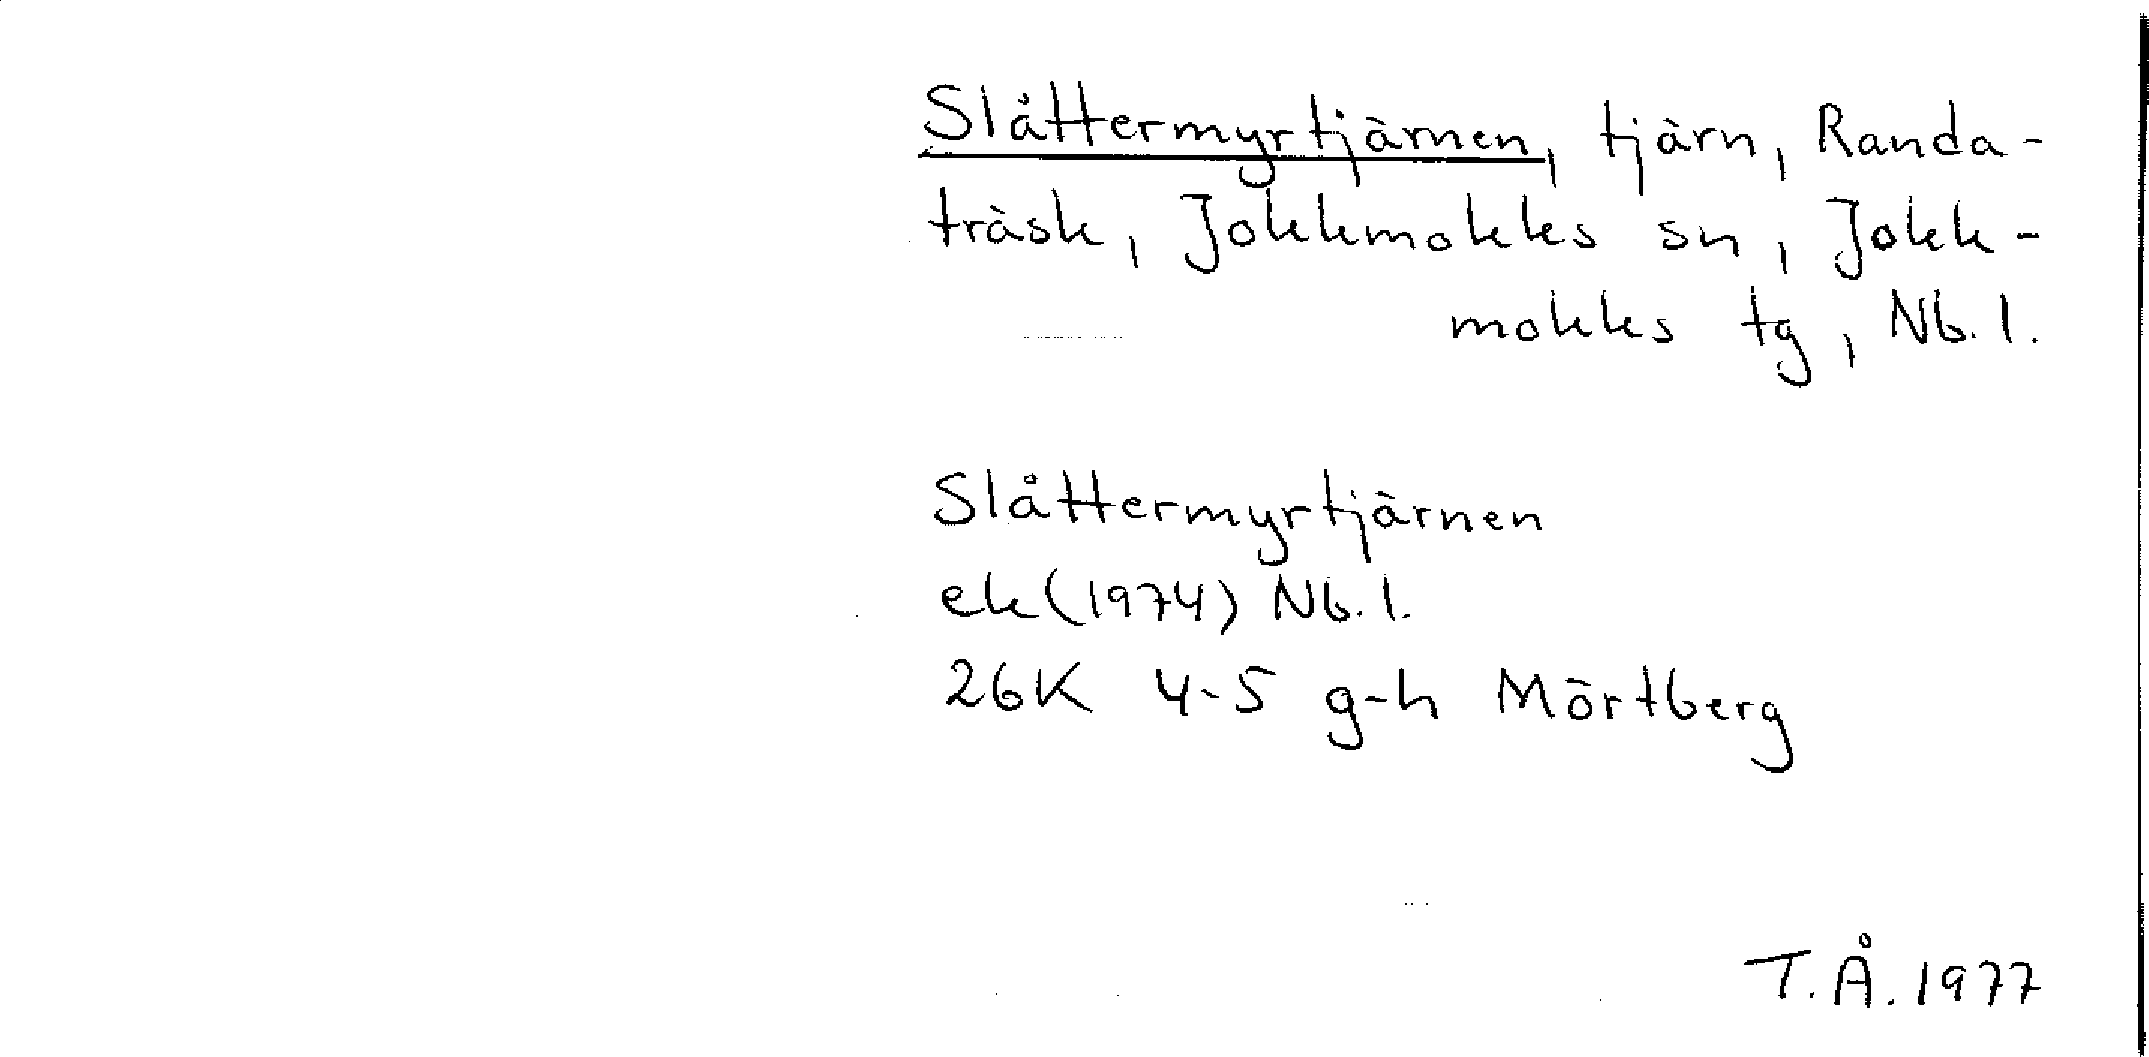 Slåttermyrtjärnen, tjärn, Randa-
träsk, Jokkmokks sn, Jokk-
mokks tg, Nb. l.
Slåttermyrtjärnen
ek (1974) Nb. l.
26K 4-5 g-h Mörtberg
T.Å. 1977